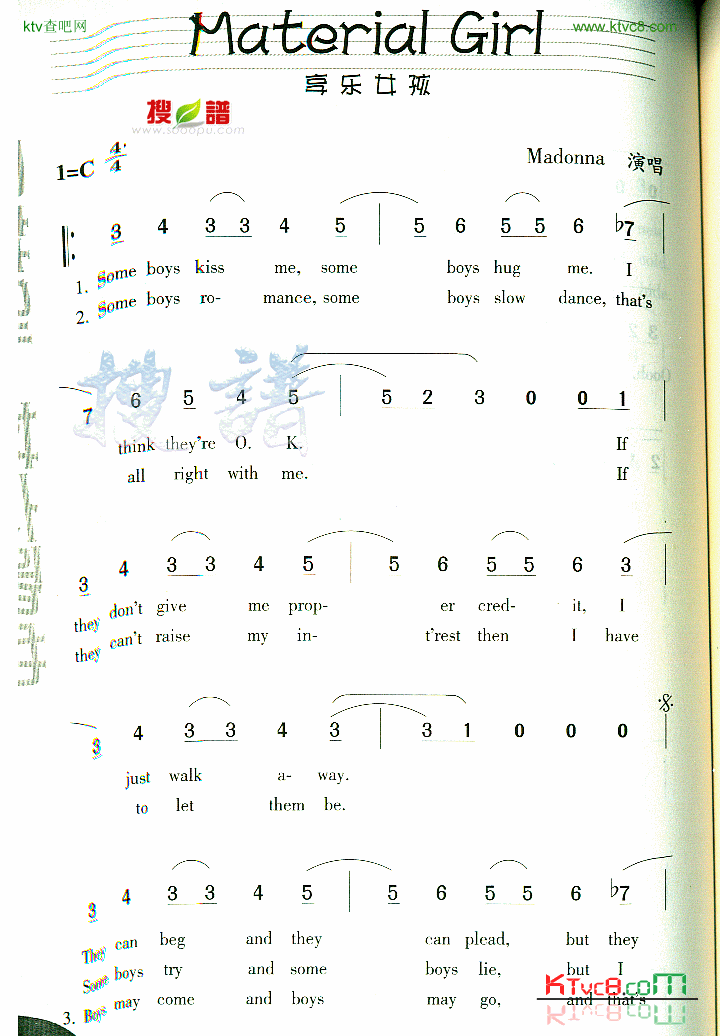 ktv查吧网
Material Girl
www.ktvc8.com
享乐女孩
搜谱
www.sooopu.com
1=C 4/4
Madonna 演唱
3 4 3 3 4 5 | 5 6 5 5 6 ♭7
1. Some boys kiss me, some boys hug me. I
2. Some boys ro- mance, some boys slow dance, that's
搜谱
7 6 5 4 5 | 5 2 3 0 0 1 |
think they're O. K. If
all right with me. If
3 4 3 3 4 5 | 5 6 5 5 6 3 |
they don't give me prop- er cred- it, I
they can't raise my in- t'rest then I have
3 4 3 3 4 3 | 3 1 0 0 0 |
just walk a- way.
to let them be.
3 4 3 3 4 5 | 5 6 5 5 6 ♭7 |
They can beg and they can plead, but they
Some boys try and some boys lie, but I
3. Boys may come and boys may go, and that's
KTvc8.com